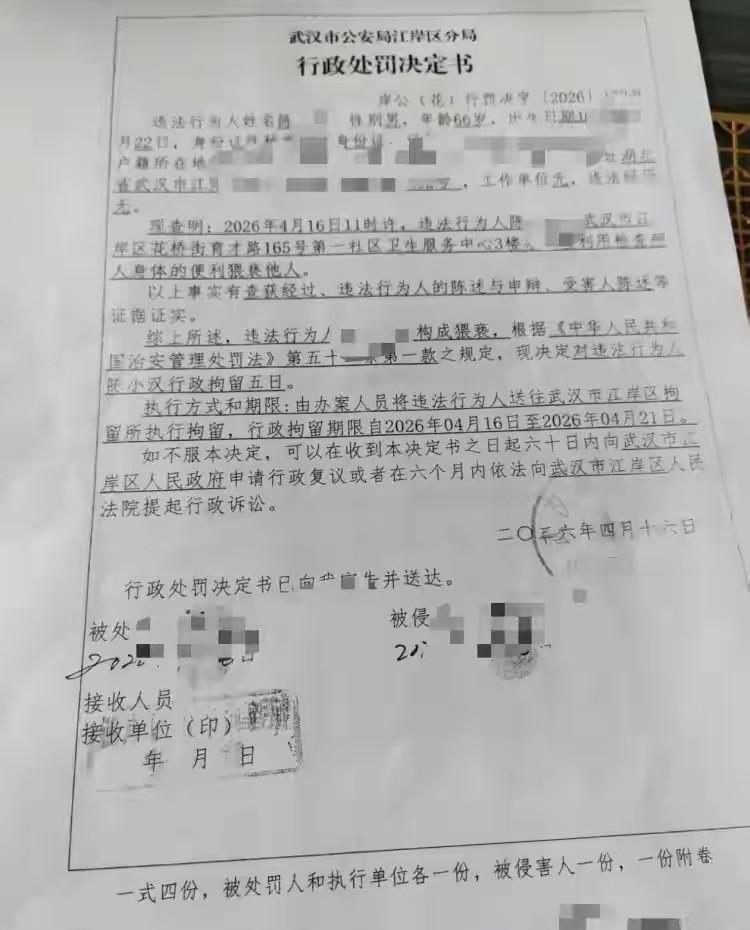 武汉市公安局江岸区分局
行政处罚决定书
岸公（花）行罚决字〔2026〕
违法行为人姓名 性别男，年龄66岁，出生日期
月22日，身份证 身份证
户籍所在地 湖北
省武汉市江 ，工作单位无，违法经历
无。
现查明：2026年4月16日11时许，违法行为人陈 武汉市江
岸区花桥街育才路165号第一社区卫生服务中心3楼 利用检查病
人身体的便利猥亵他人。
以上事实有查获经过、违法行为人的陈述与申辩、受害人陈述等
证据证实。
综上所述，违法行为人 构成猥亵，根据《中华人民共和
国治安管理处罚法》第五十 条第一款之规定，现决定对违法行为人
陈小汉行政拘留五日。
执行方式和期限：由办案人员将违法行为人送往武汉市江岸区拘
留所执行拘留，行政拘留期限自2026年04月16日至2026年04月21日。
如不服本决定，可以在收到本决定书之日起六十日内向武汉市江
岸区人民政府申请行政复议或者在六个月内依法向武汉市江岸区人民
法院提起行政诉讼。
二〇二六年四月十六日
行政处罚决定书已向 并送达。
被处 被侵
202 日 20
接收人员
接收单位（印）
年 月 日
一式四份，被处罚人和执行单位各一份，被侵害人一份，一份附卷